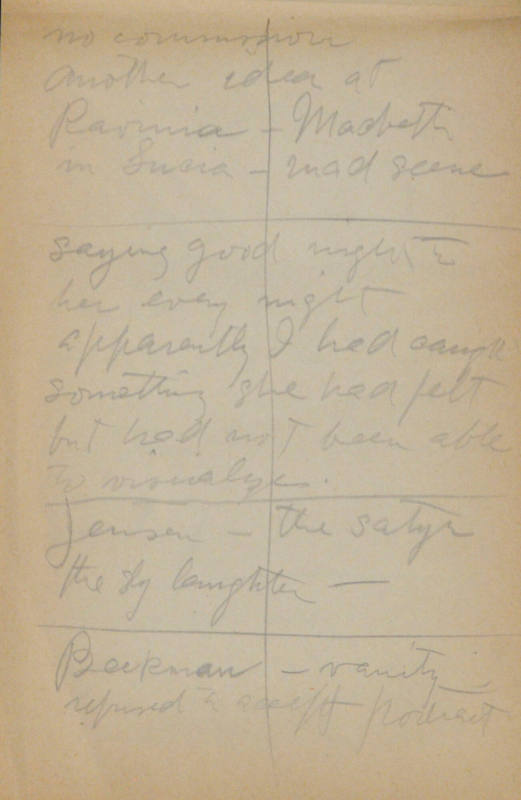 no commission
another idea at
Ravinia – Macbeth
in Lucia – mad scene
saying good night to
her every night
apparently I had caught
something she had felt
but had not been able
to visualize.
Jensen – the satyr
the sly laughter –
Beekman – vanity –
refused to accept portrait